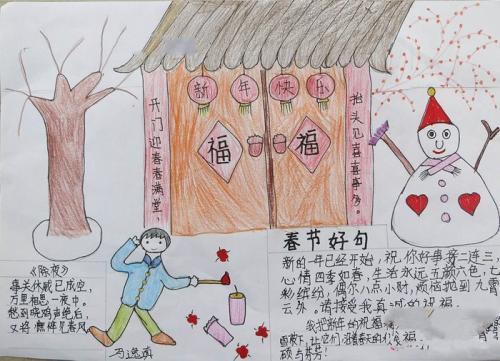 新年快乐
开门迎春春满堂
抬头见喜喜事多
福
福
《除夜》
事关休戚已成空，
万里相思一夜中。
愁到晓鸡声绝后，
又将憔悴见春风
春节好句
新的一年已经开始，祝你好事接二连三，
心情四季如春，生活永远五颜六色，七
彩缤纷，偶尔八点小财，烦恼抛到九霄
云外。请接受我真诚的祝福
我把新年的祝福